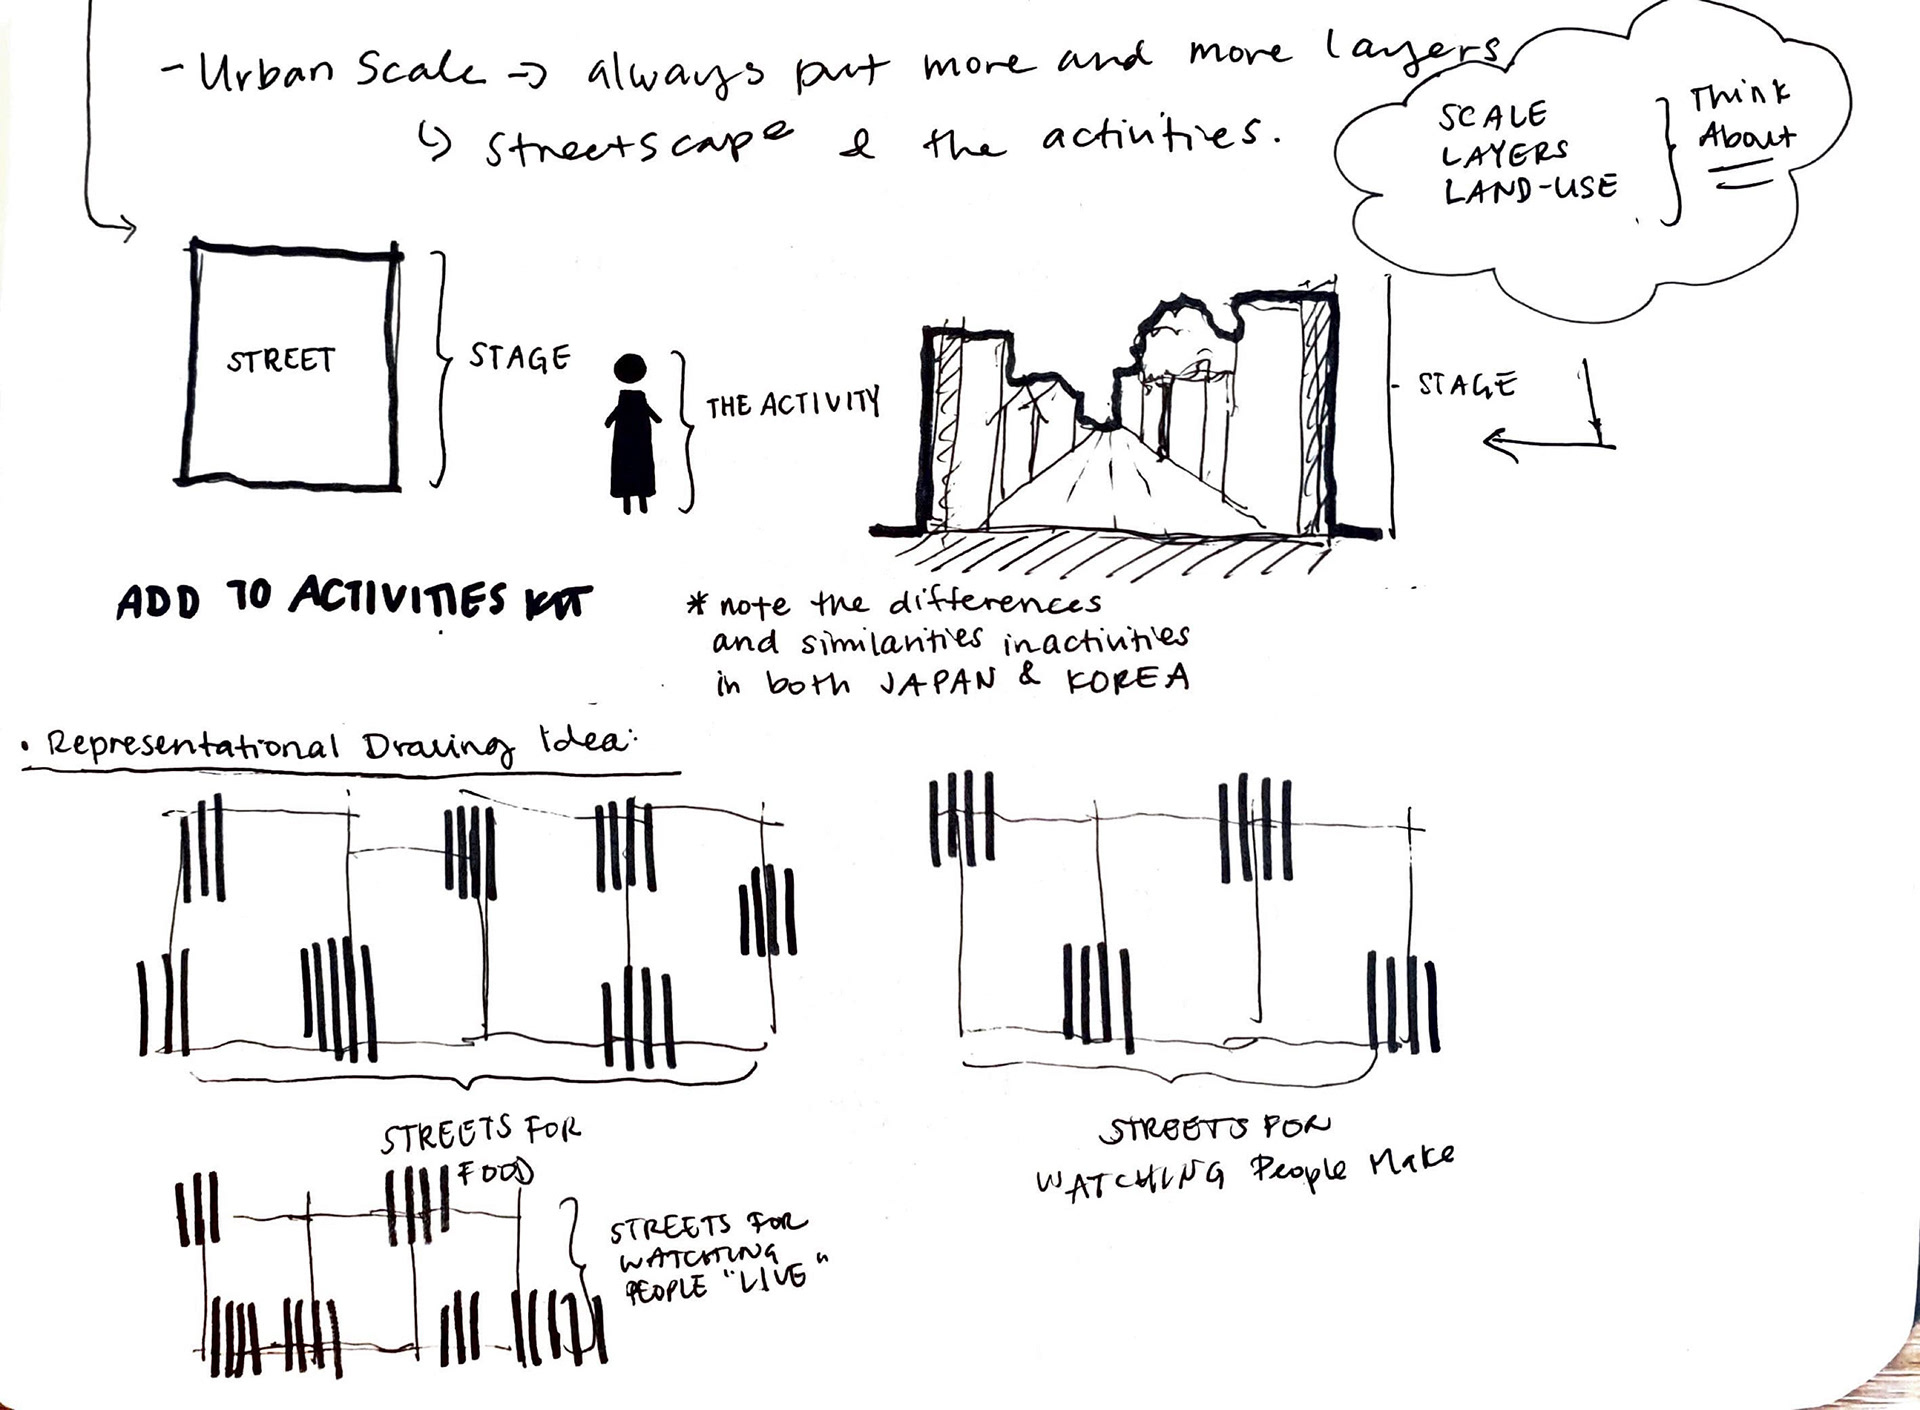 - Urban Scale → always put more and more layers
↳ streetscape & the activities.
SCALE
LAYERS
LAND-USE
Think
About
STREET
STAGE
THE ACTIVITY
STAGE
ADD TO ACTIVITIES KIT
* note the differences
and similarities in activities
in both JAPAN & KOREA
• Representational Drawing Idea:
STREETS FOR
FOOD
STREETS FOR
WATCHING People Make
STREETS FOR
WATCHING
PEOPLE "LIVE"